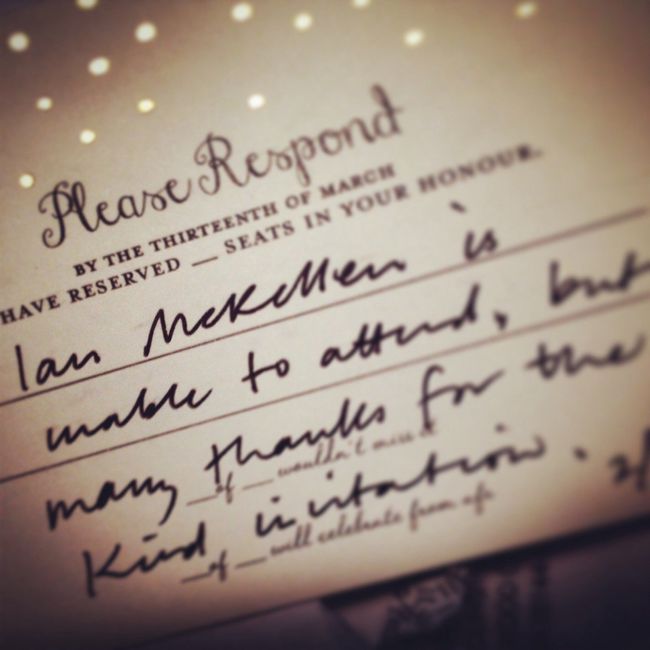 Please Respond
BY THE THIRTEENTH OF MARCH
HAVE RESERVED __ SEATS IN YOUR HONOUR.
Ian McKellen is
unable to attend, but
many thanks for the
__of __ wouldn't miss it
Kind invitation.
__of __ will celebrate from afar